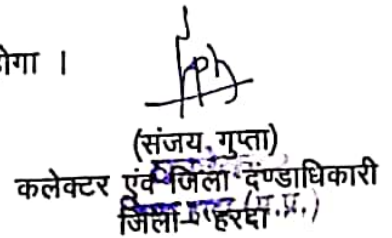 ोगा ।
(संजय गुप्ता)
कलेक्टर एंव जिला दण्डाधिकारी
जिला- हरदा (म.प्र.)